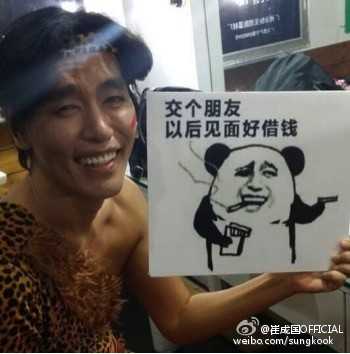 交个朋友
以后见面好借钱
@崔成国OFFICIAL
weibo.com/sungkook